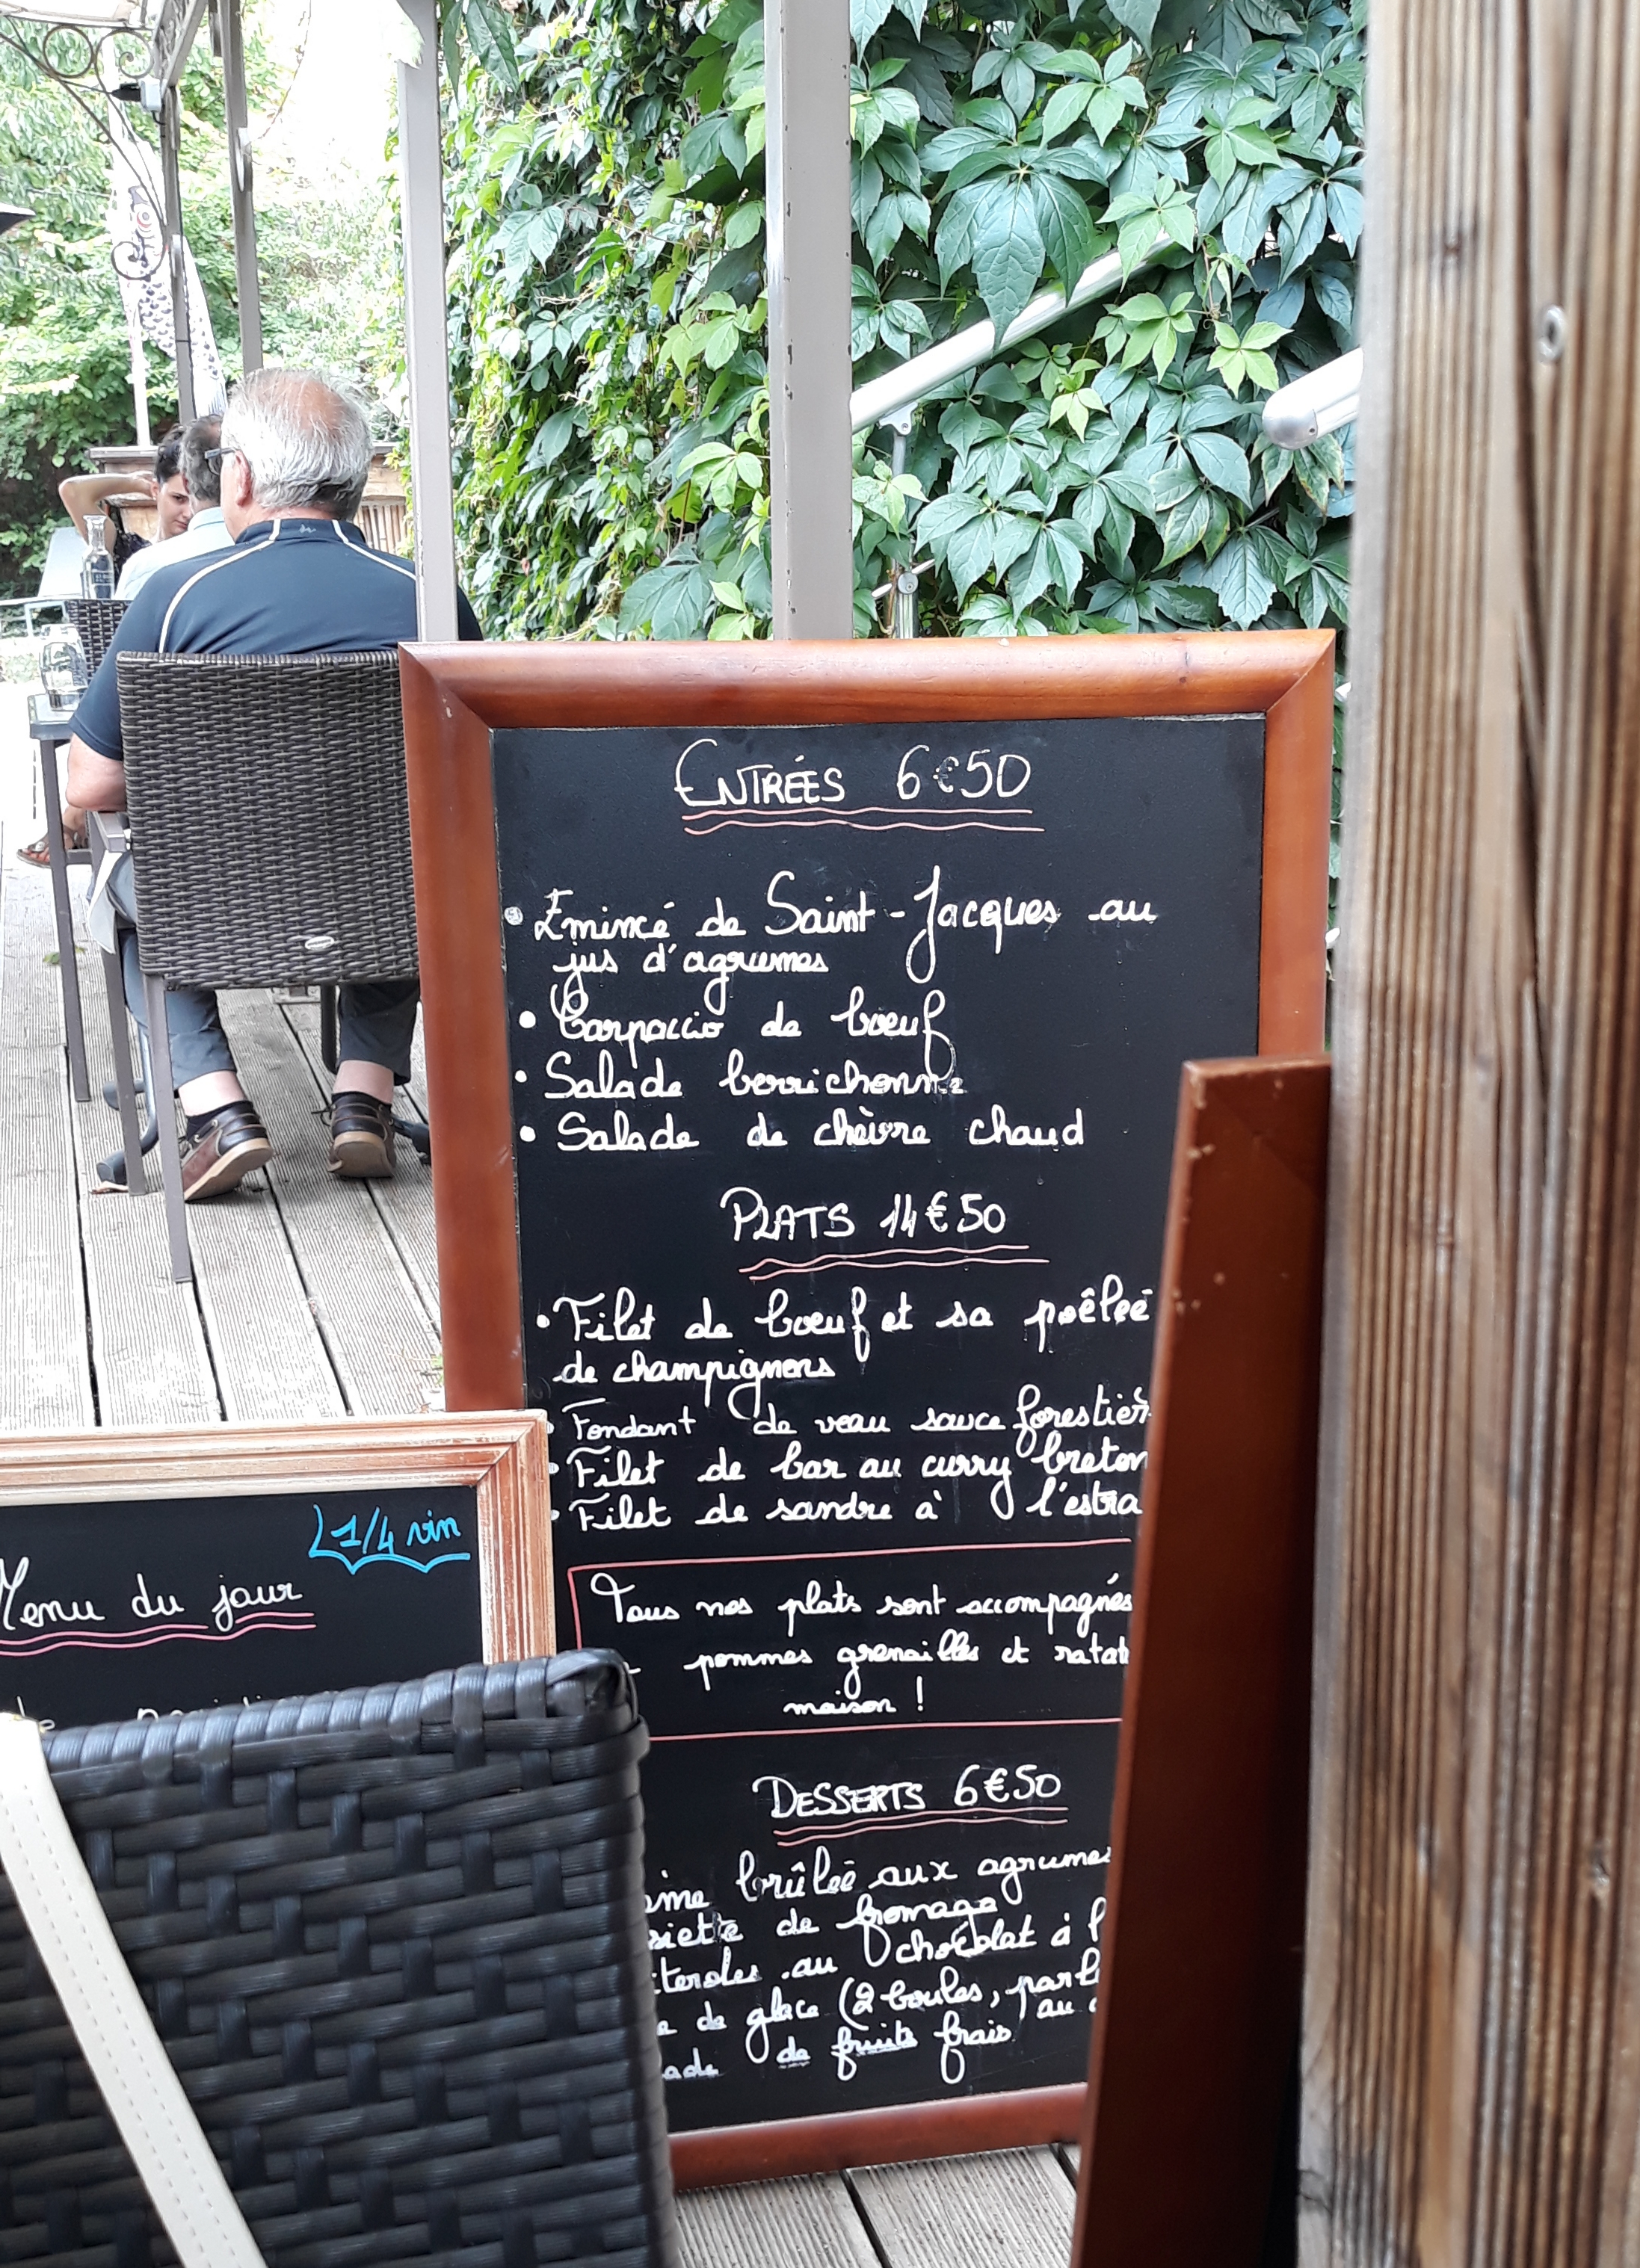 ENTRÉES 6€50
• Emincé de Saint-Jacques au
jus d'agrumes
• Carpaccio de bœuf
• Salade berrichonne
• Salade de chèvre chaud
PLATS 14€50
• Filet de bœuf et sa poêlée
de champignons
• Fondant de veau sauce forestièr
• Filet de bar au curry breton
• Filet de sandre à l'estra
Tous nos plats sont accompagnés
pommes grenailles et ratat
maison !
DESSERTS 6€50
ème brûlée aux agrumes
siette de fromage
iteroles au chocolat à l
e de glace (2 boules, parf
au
ade de fruits frais
L 1/4 vin
Menu du jour